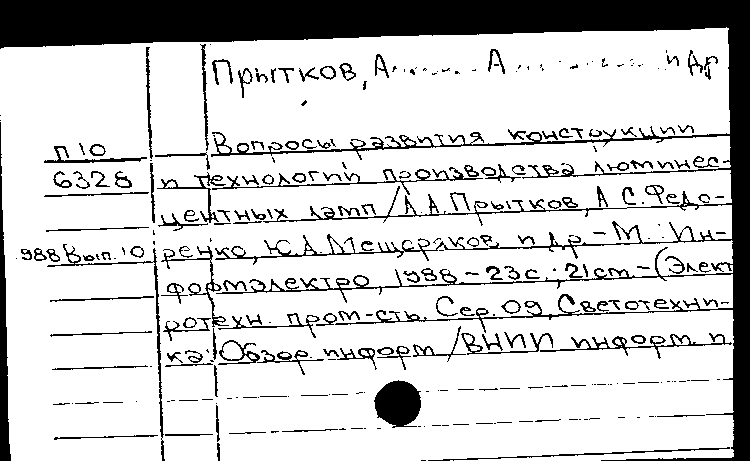 Прытков, А А и др
Вопросы развития конструкции
П 10
6328 и технологии производства люминес-
центных ламп / А.А.Прытков, А С. Федо-
988 Вып. 10 ренко, Ю.А.Мещеряков и др. – М.: Ин-
формэлектро, 1988. – 23 с.; 21 см. – (Элект
ротехн. пром-сть. Сер. 09, Светотехни-
ка: Обзор. информ / ВНИИ информ. и